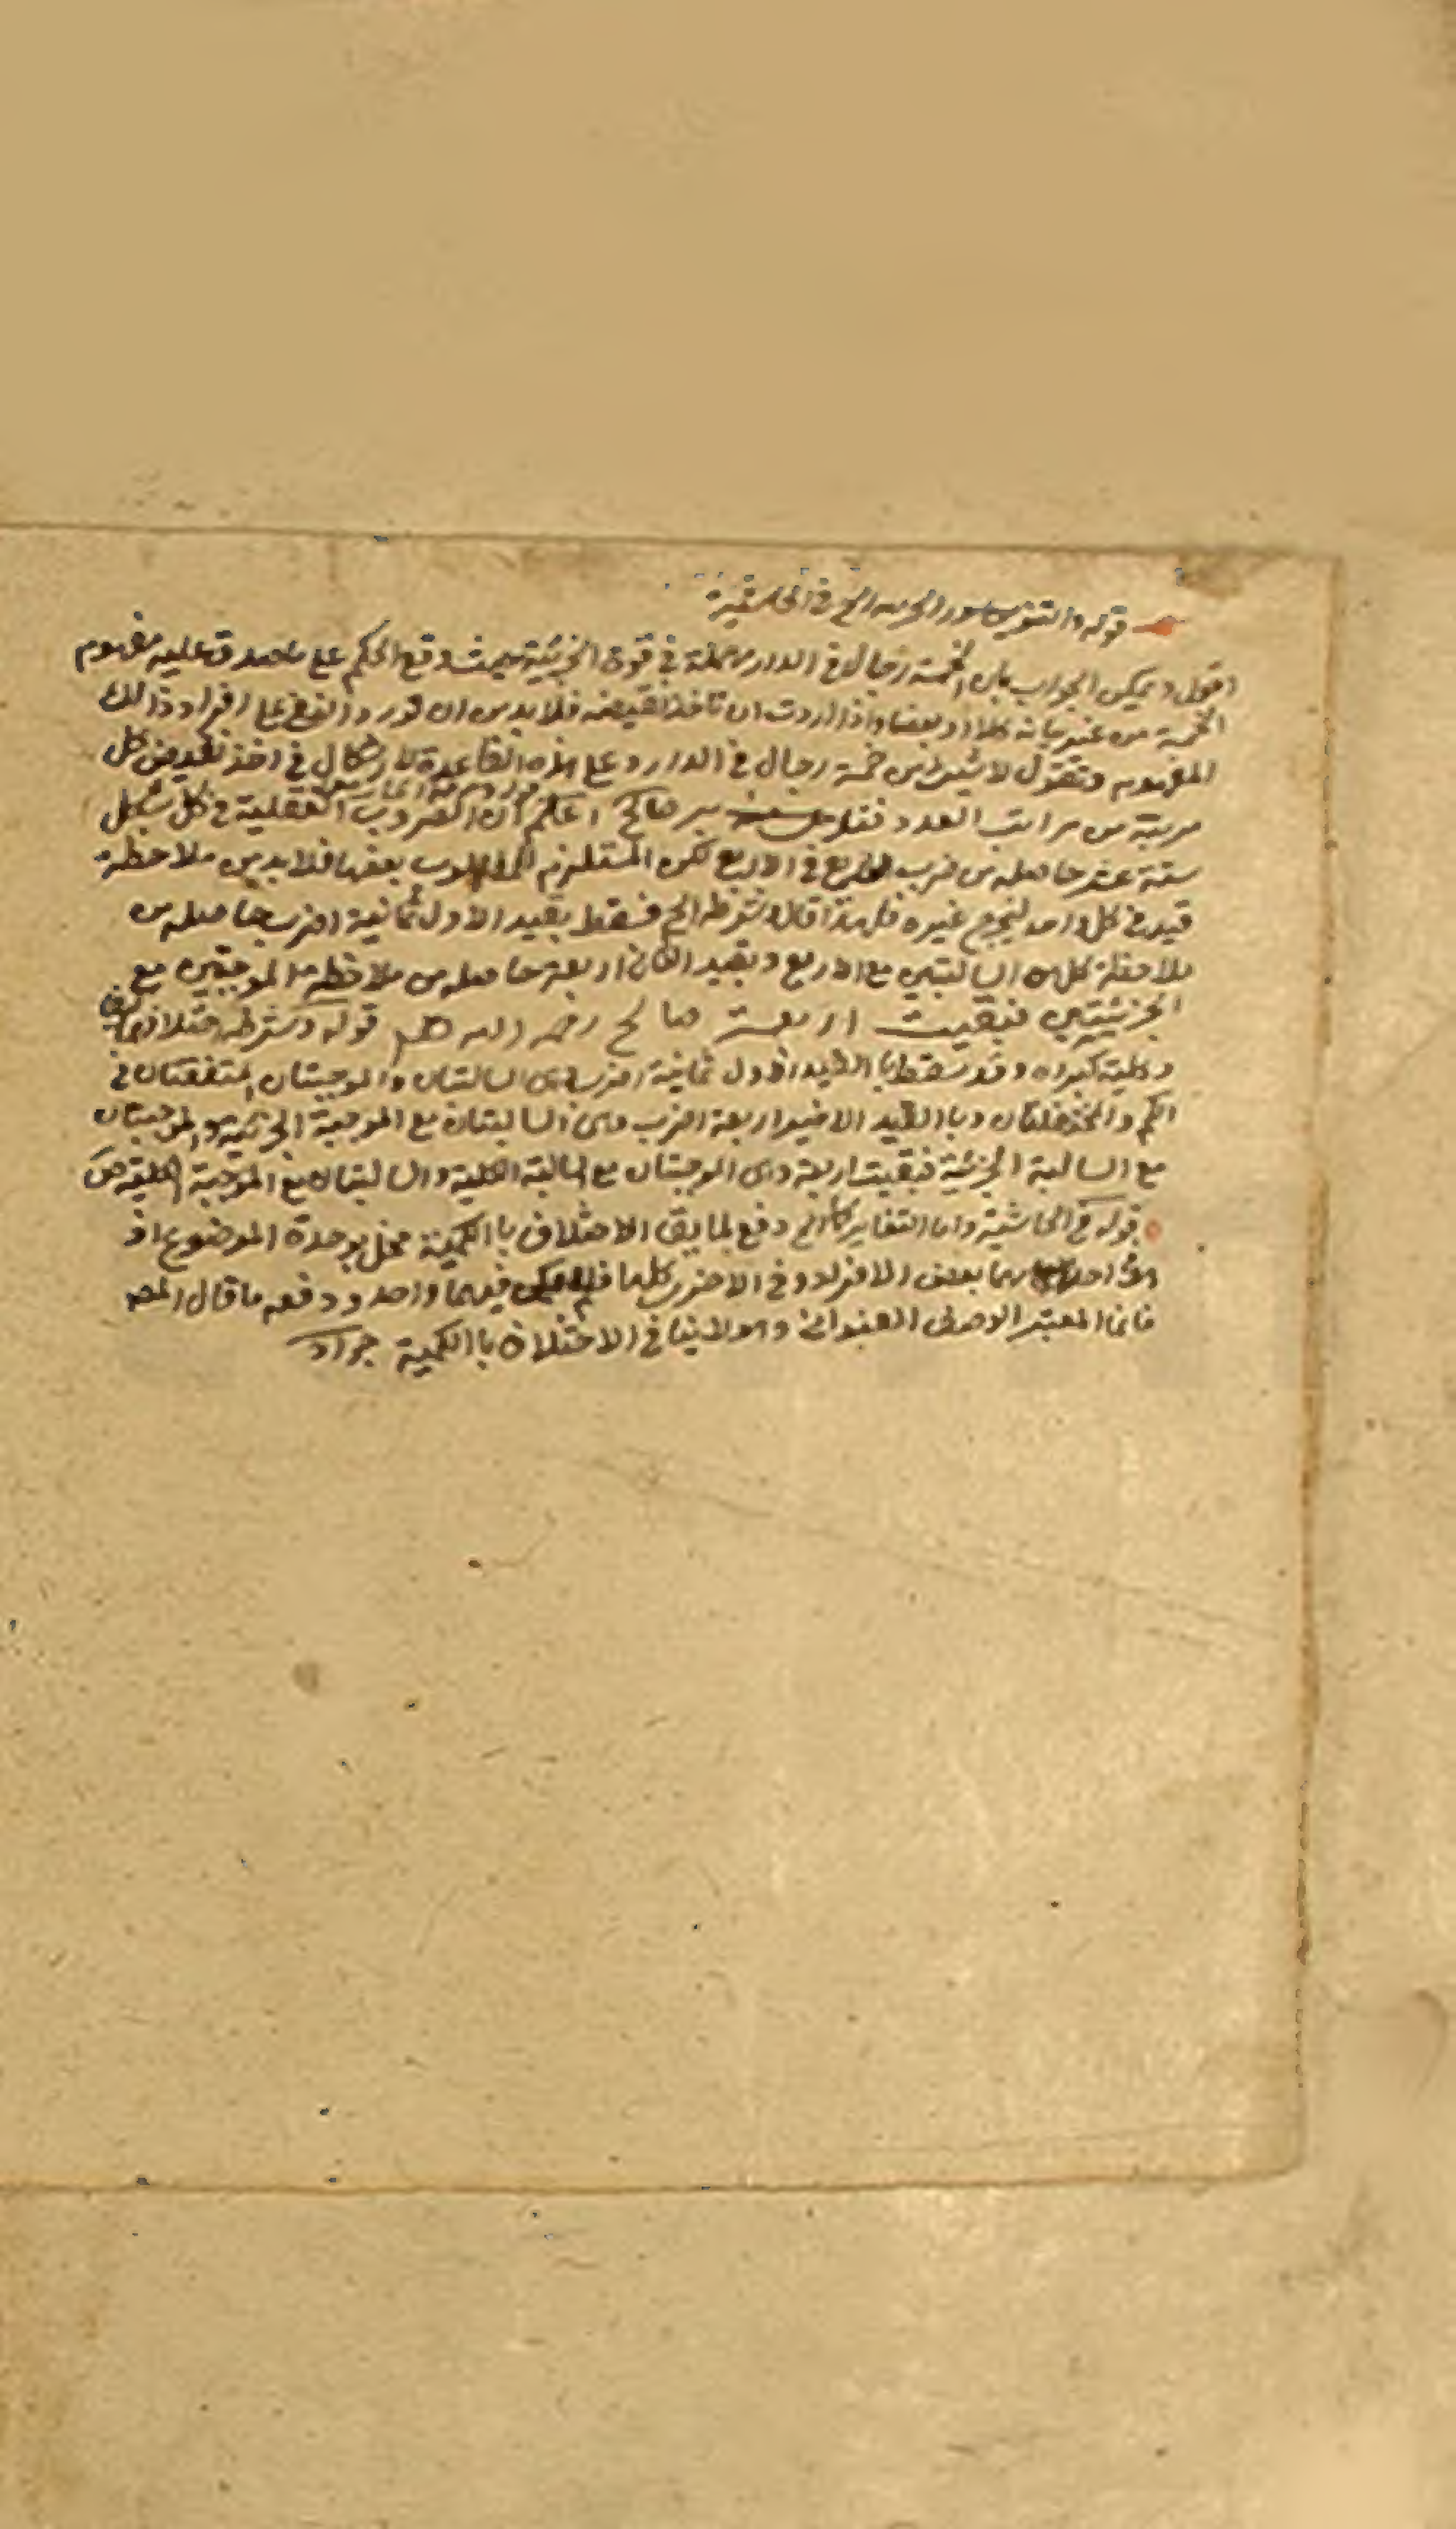 قوله والتنوين سور الخ في الحاشية
اقول ويمكن الجواب بان خمسة رجال في الدار مهملة في قوة الجزئية حيث وقع الحكم على ما صدق عليه مفهوم
الخمسة من غير بيانه كلا او بعضا واذا اردت ان تاخذ نقيضه فلا بد من ان تورد النفي على افراد ذالك
المفهوم وتقول لا شيئ من خمسة رجال في الدار وعلى هذه القاعدة لا اشكال في اخذ نقيض كل
مرتبة من مراتب العدد صالح اعلم ان الضروب العقلية في كل شكل
ستة عشر حاصلة من ضرب الاربع في الاربع لكن المستلزم للمطلوب بعضها فلا بد من ملاحظة
قيد في كل واحد ليخرج غيره فلهذا قال وشرطه الخ فسقط بقيد الاول ثمانية اضرب حاصلة من
ملاحظة كل من السالبتين مع الاربع وبقيد الثاني اربعة حاصلة من ملاحظة الموجبتين مع
الجزئيتين فبقيت اربعة صالح رحمه الله قوله وشرطه اختلافهما
وكلية كبراه وقد سقط بالقيد الاول ثمانية اضرب وهي السالبتان والموجبتان المتفقتان في
الكم والمختلفتان وباالقيد الاخير اربعة اضرب وهي السالبتان مع الموجبة الجزئية والموجبتان
مع السالبة الجزئية فبقيت اربعة وهي الموجبتان مع السالبة الكلية والسالبتان مع الموجبة الكلية
قوله في الحاشية واما التغاير الخ دفع لما يق الاختلاف باالكمية مخل بوحدة الموضوع اذ
بعض الافراد وفي الاخرى كلها فيهما واحد ودفعه ما قال المص
فانما المعتبر العنواني وهو لا ينافي الاختلاف باالكمية جواد